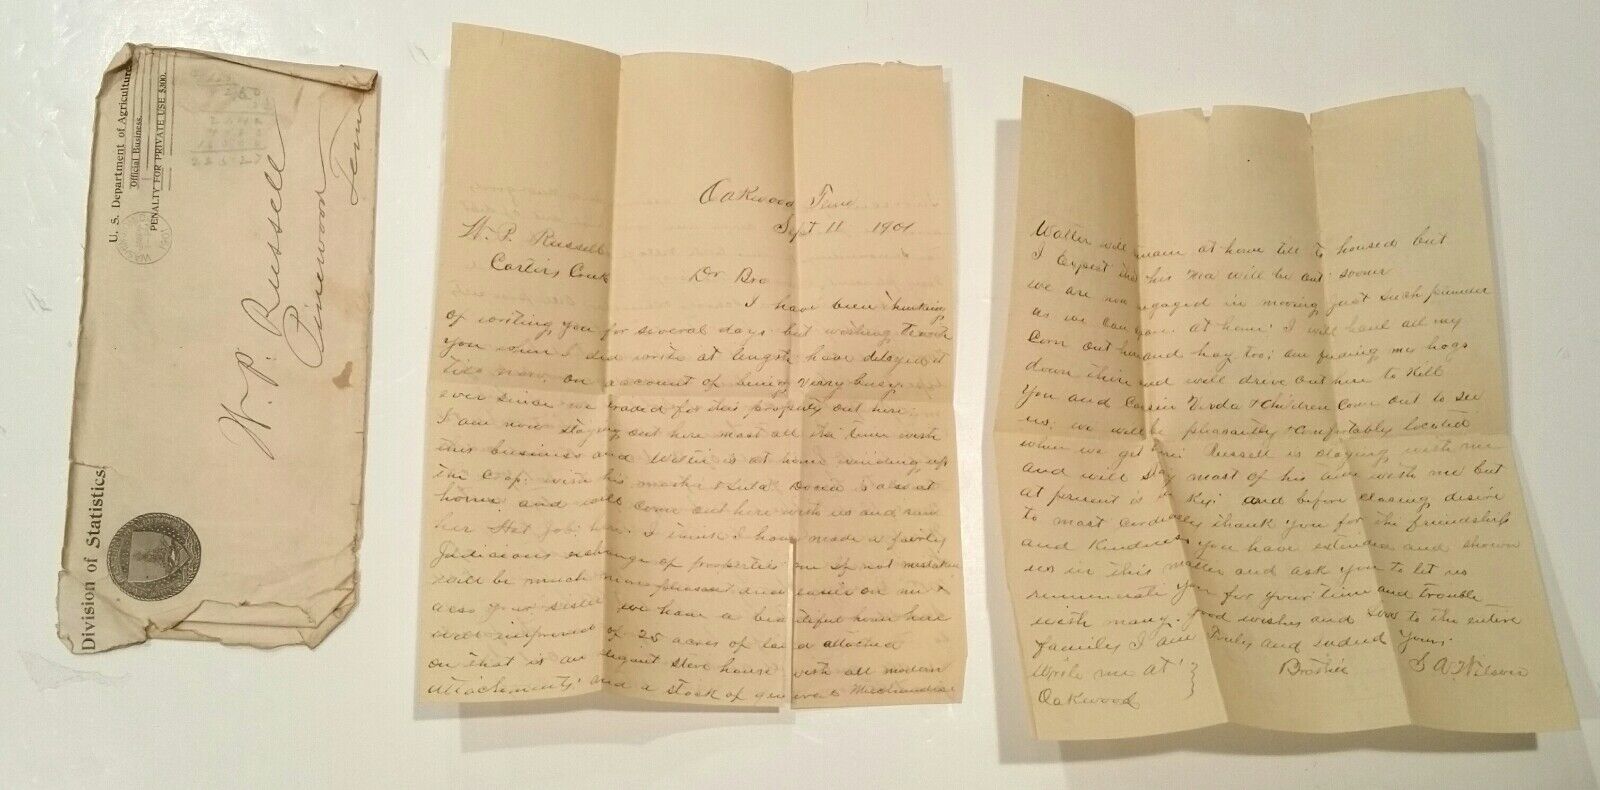 U. S. Department of Agriculture,
Official Business.
PENALTY FOR PRIVATE USE $300.
Division of Statistics.
W. P. Russell
Pinewood
Tenn
Oakwood Tenn
Sept 11 1901
W. P. Russell
Dr Bro
I have been thinking
of writing you for several days but wishing to write
you when I did write at length have delayed it
till now. on account of being very busy
ever since we traded for this property out here.
I am now staying out here most all the time with
this business and Walter is at home winding up
the crop. with his & Lula. is also at
home and will come out here with us and run
her Hat job here. I think I have made a fairly
Judicious exchange of properties If not mistaken
will be much more pleasant and easier on me &
also your sister we have a beautiful home here
well improved of 25 acres of land attached
on that is an eligant store house with all modern
attachments and a stock of general Merchandise
Walter will remain at home till housed but
I expect that his will be out sooner
we are now engaged in moving just such plunder
as we can at home I will haul all my
Corn out here and hay too; am feeding my hogs
down there and will drive out here to Kill
You and Cousin & Children Come out to see
us; we will be pleasantly & Comfortably located
when we get Russell is staying with me
and will stay most of his time with me but
at present is in Ky. and before closing desire
to most cordially thank you for the friendship
and Kindness you have extended and shown
us in this matter and ask you to let us
remunerate you for your time and trouble
with many good wishes and love to the entire
family I am Truly and indeed yours.
Write me at } Brother S A Wilson
Oakwood